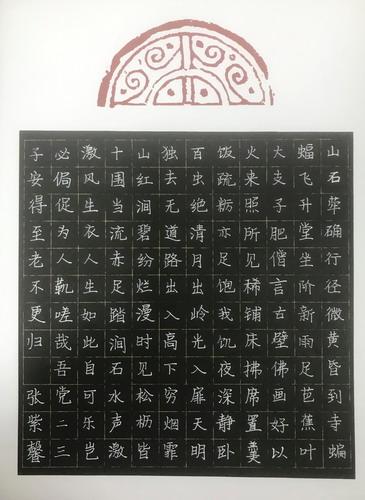 山石荦确行径微黄昏到寺蝙
蝠飞升堂坐阶新雨足芭蕉叶
大支子肥僧言古壁佛画好以
火来照所见稀铺床拂席置羹
饭疏粝亦足饱我饥夜深静卧
百虫绝清月出岭光入扉天明
独去无道路出入高下穷烟霏
山红涧碧纷烂漫时见松枥皆
十围当流赤足踏涧石水声激
激风生衣人生如此自可乐岂
必侷促为人鞿嗟哉吾党二三
子安得至老不更归 张紫馨